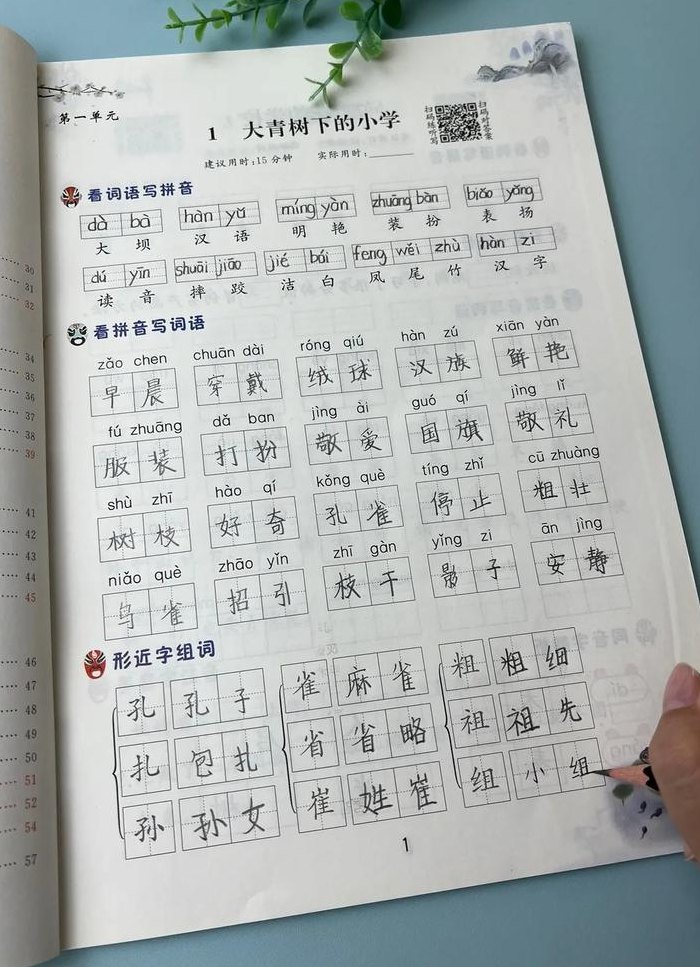 第一单元
1 大青树下的小学
建议用时:15分钟 实际用时:
扫码练听写
扫码对答案
看词语写拼音
dà bà hàn yǔ míng yàn zhuāng bàn biǎo yáng
大 坝 汉 语 明 艳 装 扮 表 扬
dú yīn shuāi jiāo jié bái feng wěi zhù hàn zi
读 音 摔 跤 洁 白 凤 尾 竹 汉 字
看拼音写词语
zǎo chen chuān dài róng qiú hàn zú xiān yàn
早 晨 穿 戴 绒 球 汉 族 鲜 艳
fú zhuāng dǎ ban jìng ài guó qí jìng lǐ
服 装 打 扮 敬 爱 国 旗 敬 礼
shù zhī hào qí kǒng què tíng zhǐ cū zhuàng
树 枝 好 奇 孔 雀 停 止 粗 壮
niǎo què zhāo yǐn zhī gàn yǐng zi ān jìng
鸟 雀 招 引 枝 干 影 子 安 静
形近字组词
孔 孔子 雀 麻雀 粗 粗细
扎 包扎 省 省略 祖 祖先
孙 孙女 崔 姓崔 组 小组
1
30
31
32
34
35
36
37
38
39
41
42
43
44
45
46
47
48
49
50
51
52
54
57